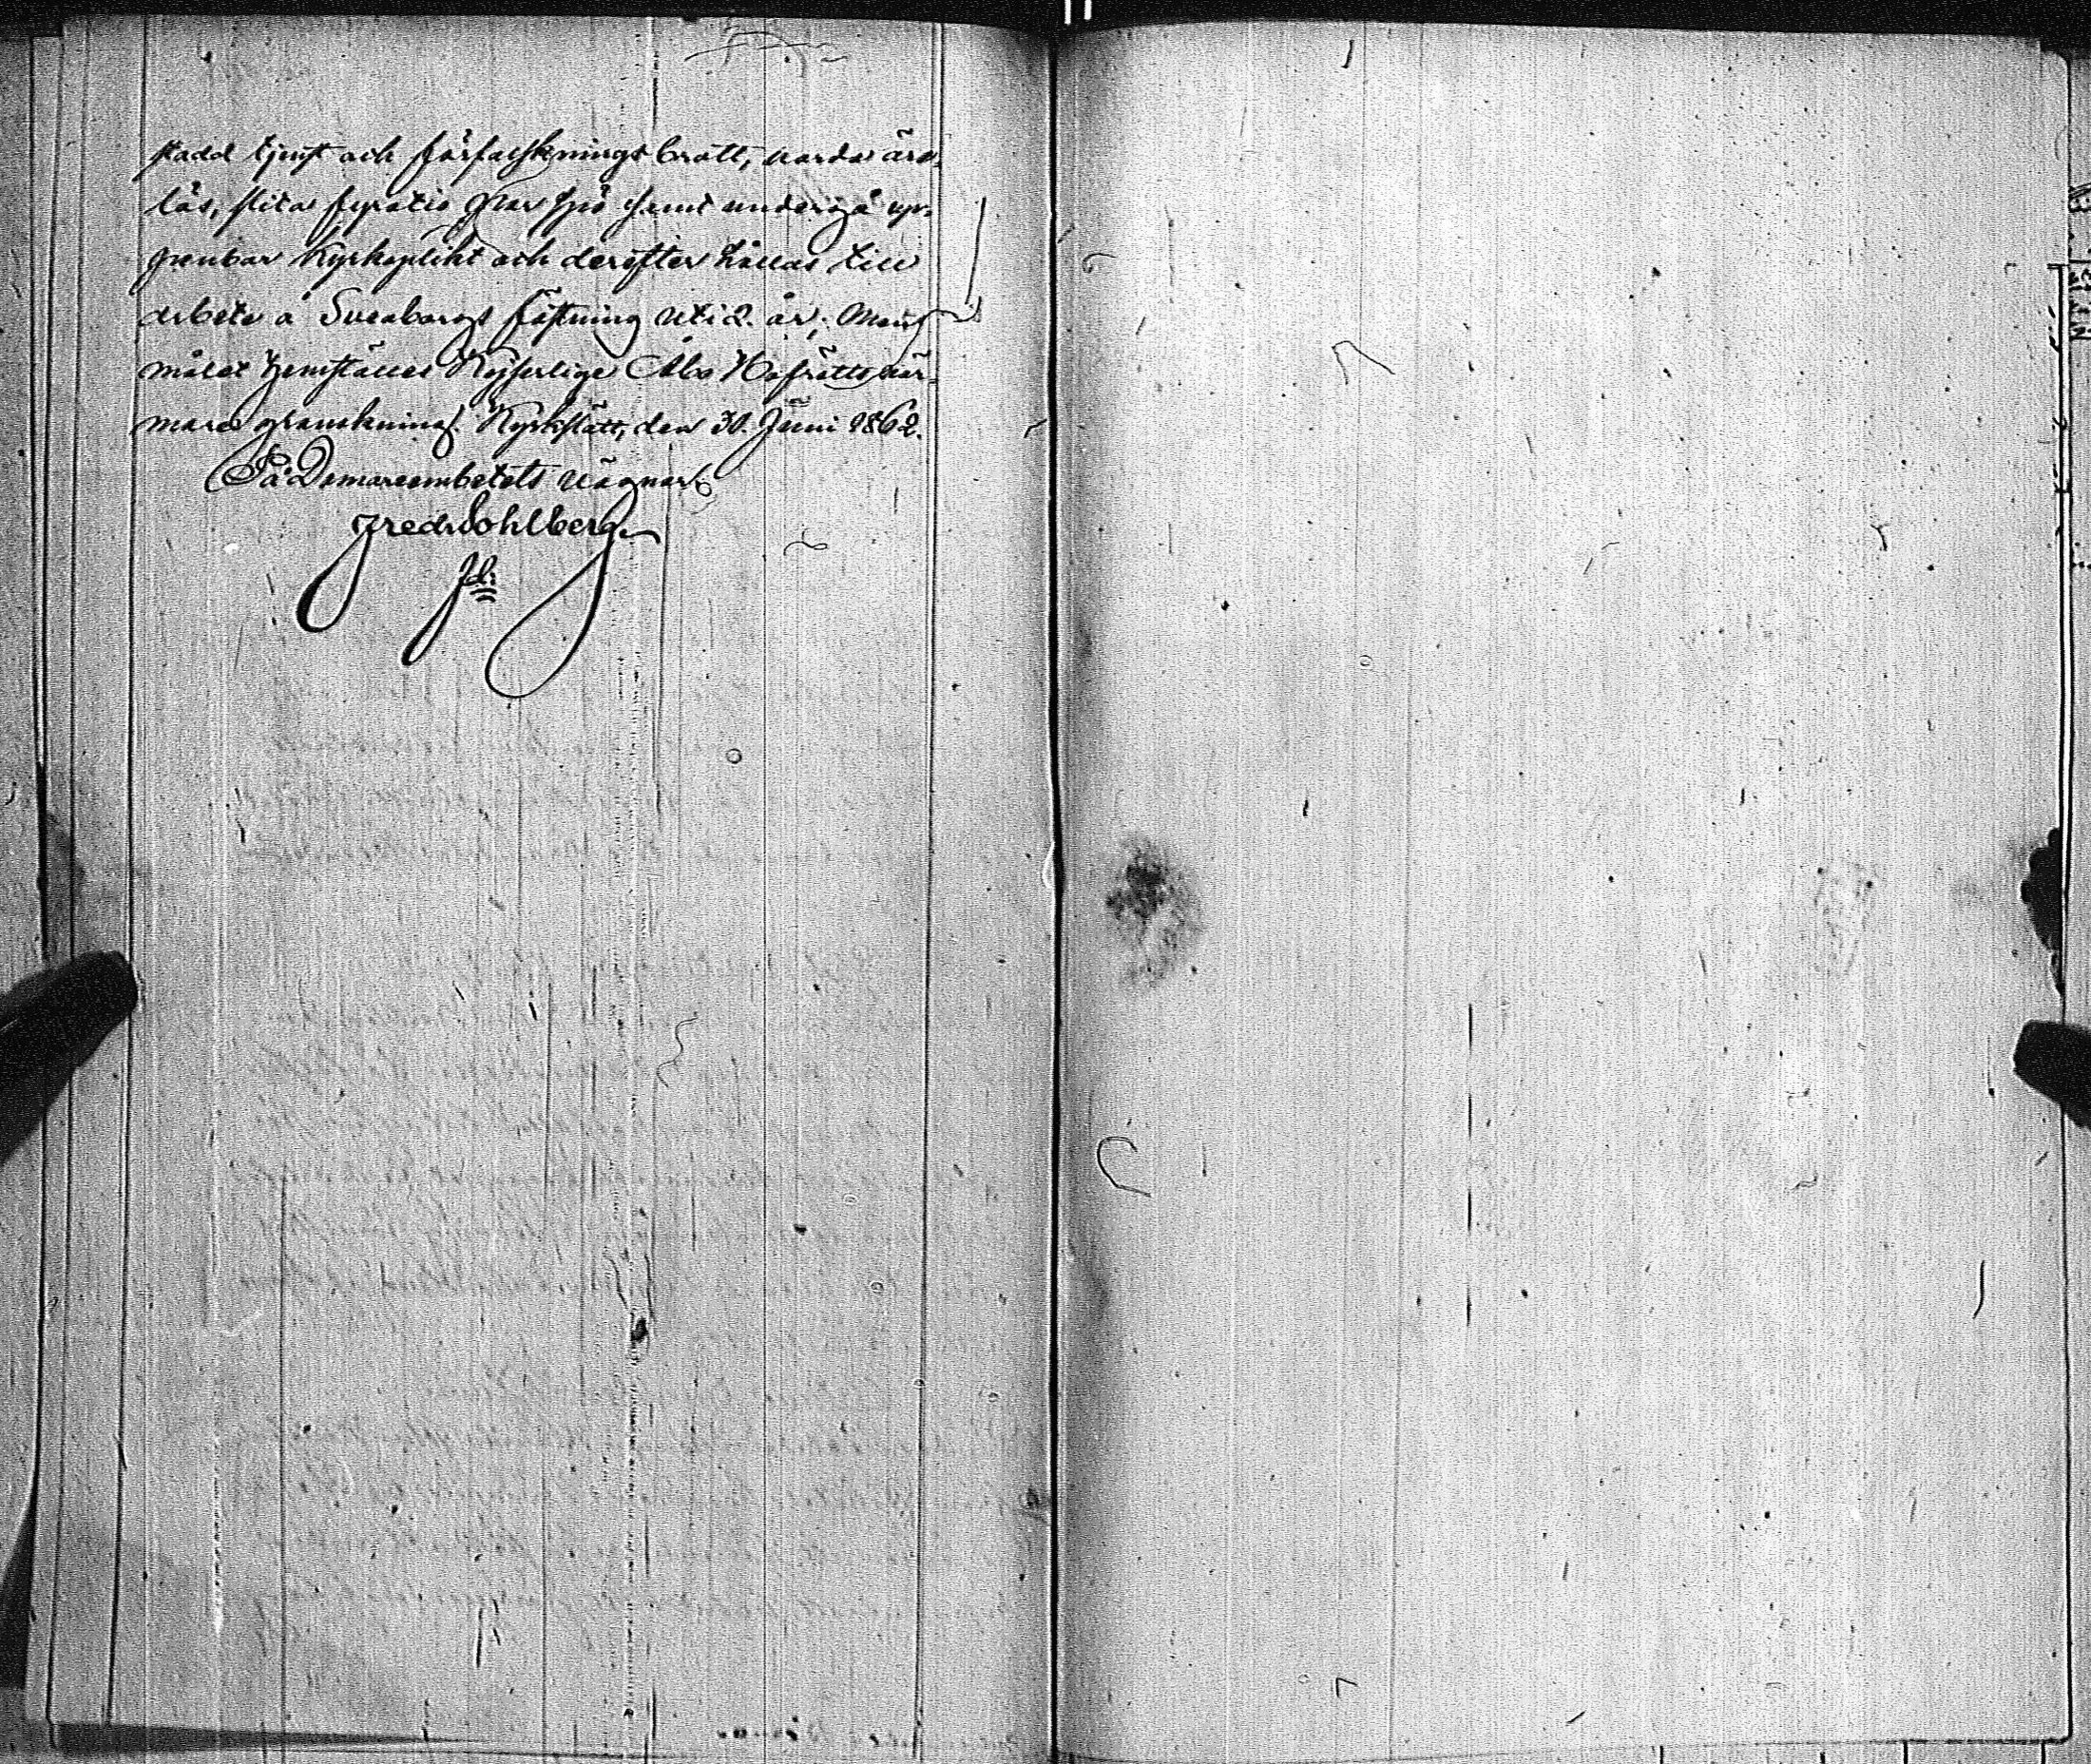 stadd tjenst och förfalsknings brott, varda äre-
lös, slita fyratio par spö samt undergå up-
penbar Kyrkoplikt och derefter hållas till
arbete å Sveaborgs fästning uti 2. år; Men
målet hemställes Kejserliga Åbo Hofrätts när-
mare granskning. Kyrkslätt, den 30. Juni 1862.
På Domareembetets vägnar
Fredr Sohlberg